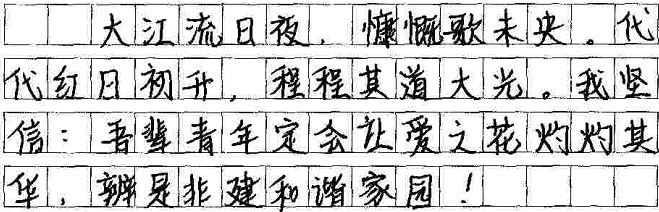 大江流日夜，慷慨歌未央。代
代红日初升，程程其道大光。我坚
信：吾辈青年定会让爱之花灼灼其
华，辨是非建和谐家园！